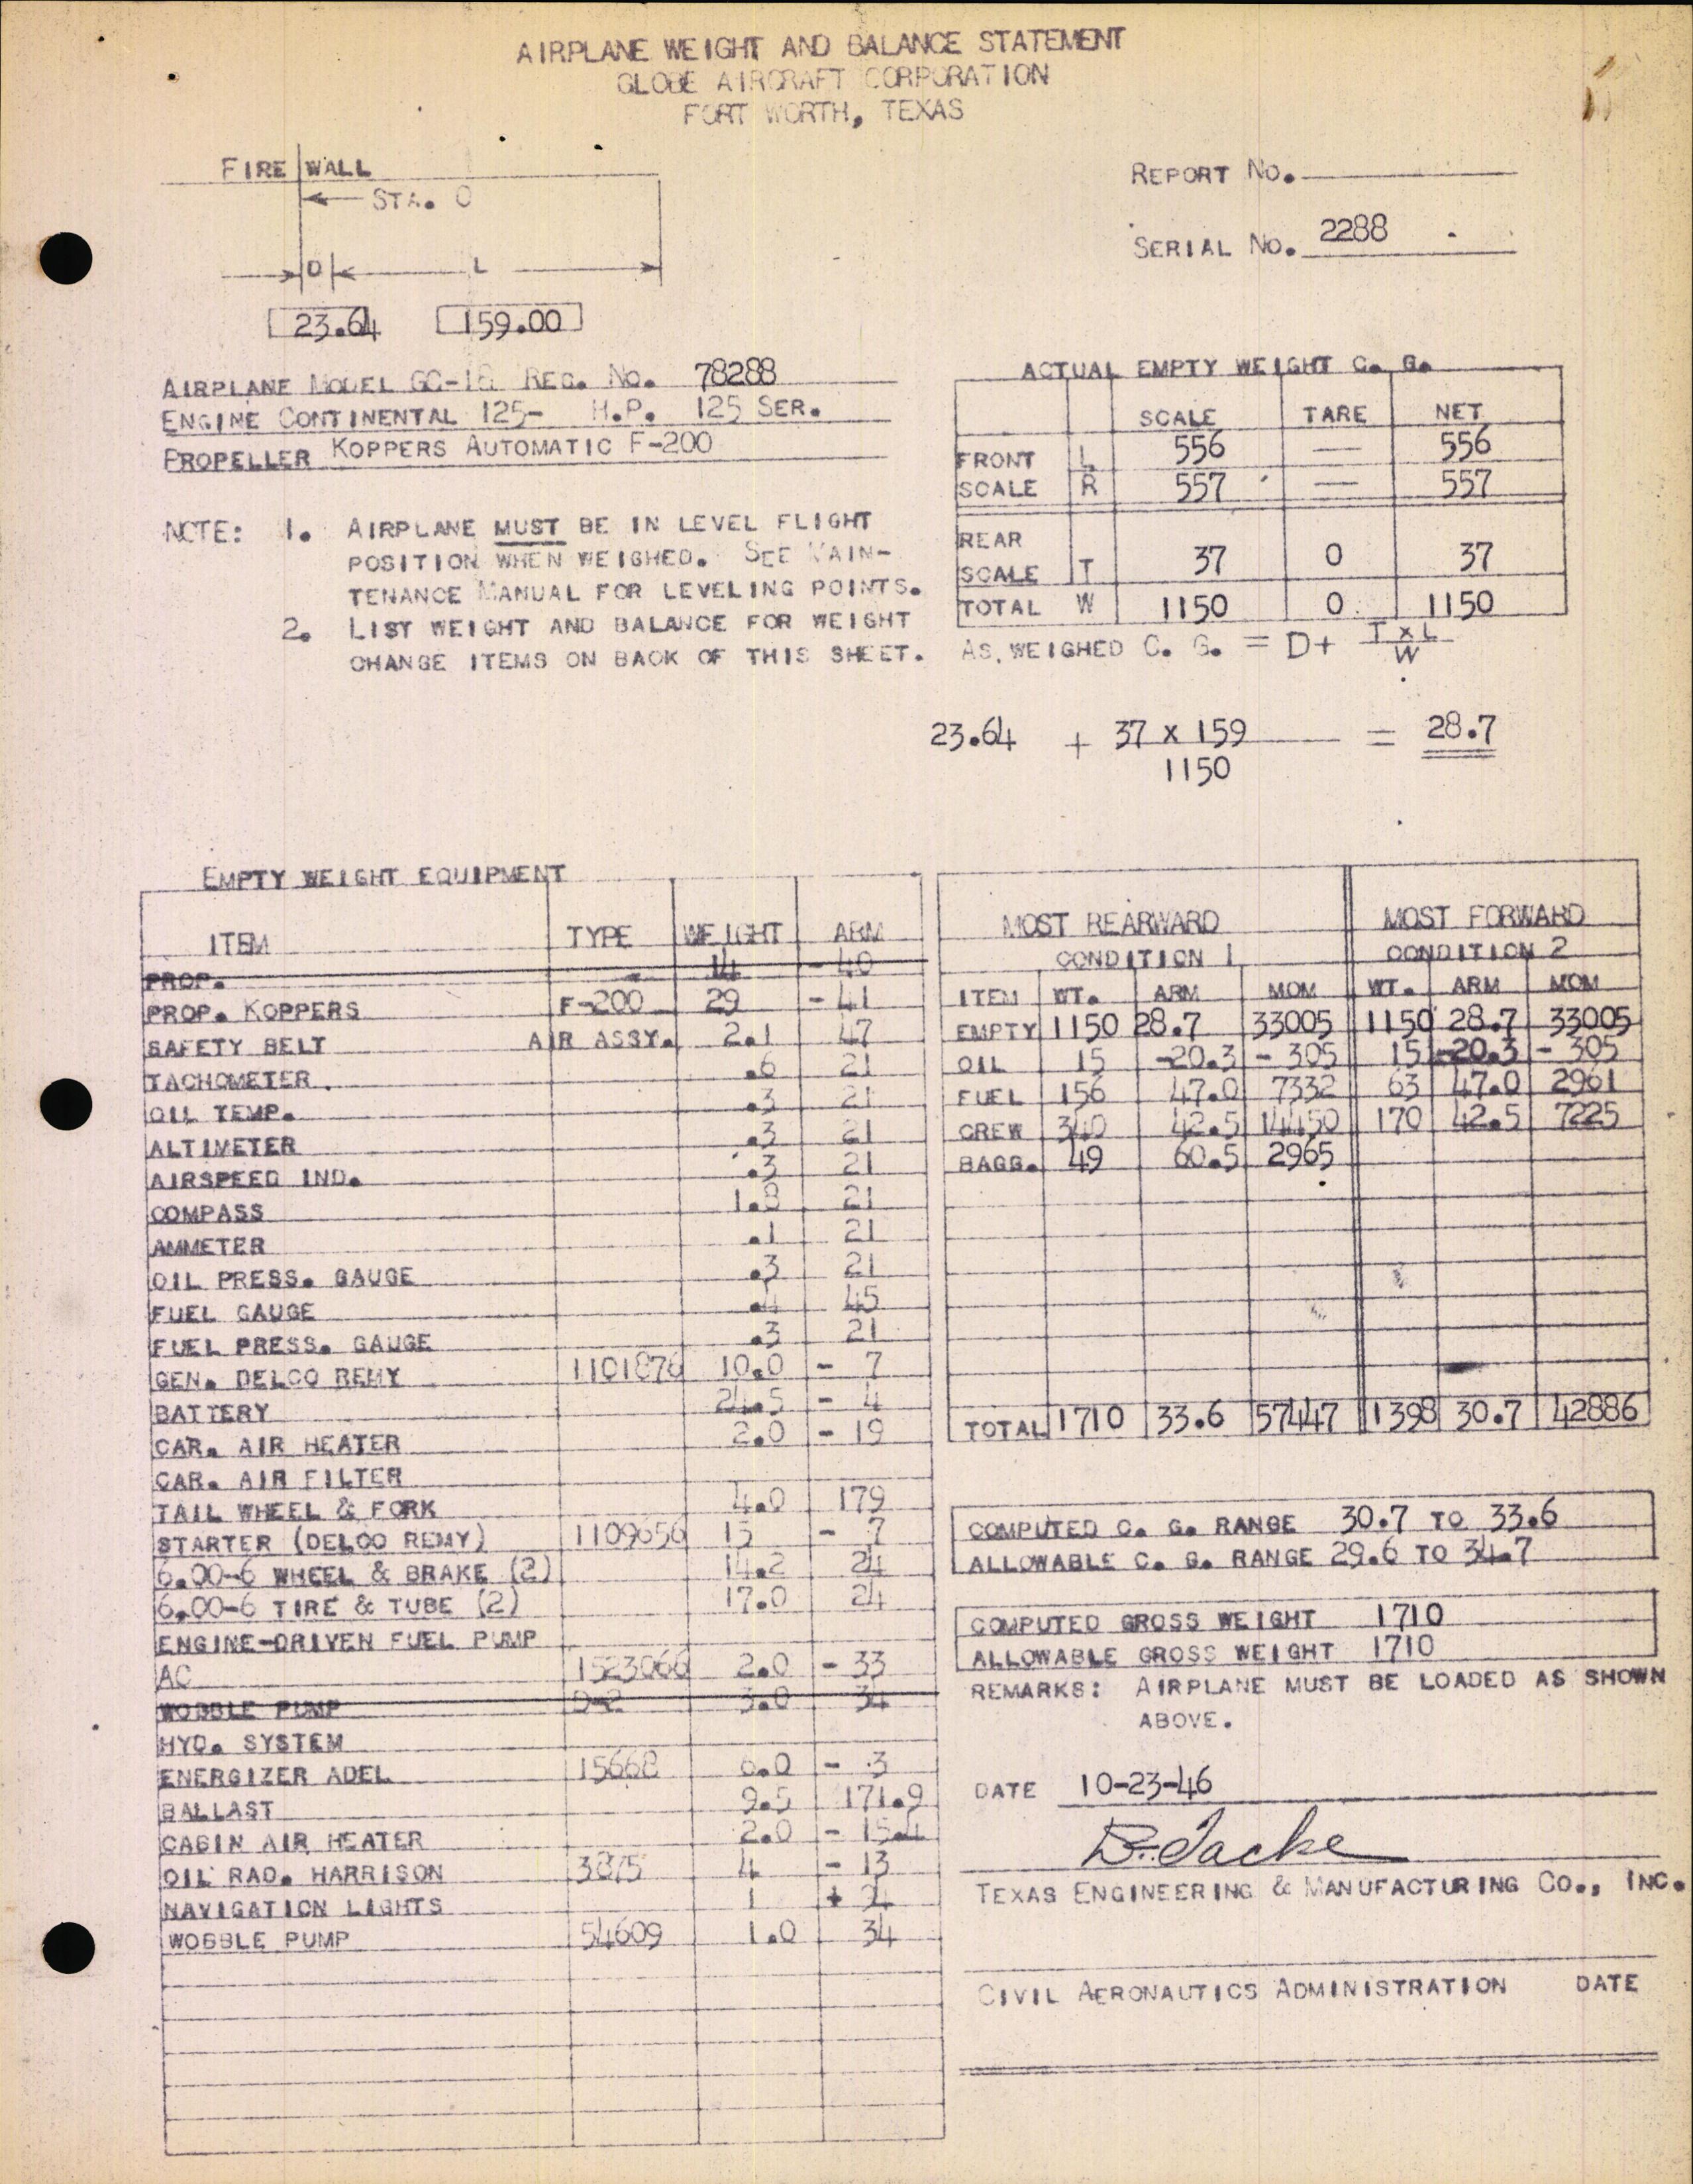 AIRPLANE WEIGHT AND BALANCE STATEMENT
GLOBE AIRCRAFT CORPORATION
FORT WORTH, TEXAS
FIRE WALL
STA. 0
D L
23.64 159.00
REPORT No.
SERIAL No. 2288
AIRPLANE MODEL GC-1B REG. No. 78288
ENGINE CONTINENTAL 125- H.P. 125 SER.
PROPELLER KOPPERS AUTOMATIC F-200
NOTE: 1. AIRPLANE MUST BE IN LEVEL FLIGHT
POSITION WHEN WEIGHED. SEE MAIN-
TENANCE MANUAL FOR LEVELING POINTS.
2. LIST WEIGHT AND BALANCE FOR WEIGHT
CHANGE ITEMS ON BACK OF THIS SHEET.
ACTUAL EMPTY WEIGHT C. G.
SCALE TARE NET
FRONT L 556 — 556
SCALE R 557 — 557
REAR
SCALE T 37 0 37
TOTAL W 1150 0 1150
AS WEIGHED C. G. = D+ T x L
W
23.64 + 37 x 159 = 28.7
1150
EMPTY WEIGHT EQUIPMENT
ITEM TYPE WEIGHT ARM
PROP. 14 -40
PROP. KOPPERS F-200 29 -41
SAFETY BELT AIR ASSY. 2.1 47
TACHOMETER .6 21
OIL TEMP. .3 21
ALTIMETER .3 21
AIRSPEED IND. .3 21
COMPASS 1.8 21
AMMETER .1 21
OIL PRESS. GAUGE .3 21
FUEL GAUGE .4 45
FUEL PRESS. GAUGE .3 21
GEN. DELCO REMY 1101876 10.0 - 7
BATTERY 24.5 - 4
CAR. AIR HEATER 2.0 - 19
CAR. AIR FILTER
TAIL WHEEL & FORK 4.0 179
STARTER (DELCO REMY) 1109656 15 - 7
6.00-6 WHEEL & BRAKE (2) 14.2 24
6.00-6 TIRE & TUBE (2) 17.0 24
ENGINE-DRIVEN FUEL PUMP
AC 1523066 2.0 - 33
WOBBLE PUMP D-2 3.0 34
HYD. SYSTEM
ENERGIZER ADEL 15668 6.0 - 3
BALLAST 9.5 171.9
CABIN AIR HEATER 2.0 - 15.4
OIL RAD. HARRISON 3875 4 - 13
NAVIGATION LIGHTS 1 +
WOBBLE PUMP 54609 1.0 34
MOST REARWARD MOST FORWARD
CONDITION 1 CONDITION 2
ITEM WT. ARM MOM WT. ARM MOM
EMPTY 1150 28.7 33005 1150 28.7 33005
OIL 15 -20.3 - 305 15 -20.3 - 305
FUEL 156 47.0 7332 63 47.0 2961
CREW 340 42.5 14450 170 42.5 7225
BAGG. 49 60.5 2965
TOTAL 1710 33.6 57447 1398 30.7 42886
COMPUTED C. G. RANGE 30.7 TO 33.6
ALLOWABLE C. G. RANGE 29.6 TO 34.7
COMPUTED GROSS WEIGHT 1710
ALLOWABLE GROSS WEIGHT 1710
REMARKS: AIRPLANE MUST BE LOADED AS SHOWN
ABOVE.
DATE 10-23-46
TEXAS ENGINEERING & MANUFACTURING CO., INC.
CIVIL AERONAUTICS ADMINISTRATION DATE